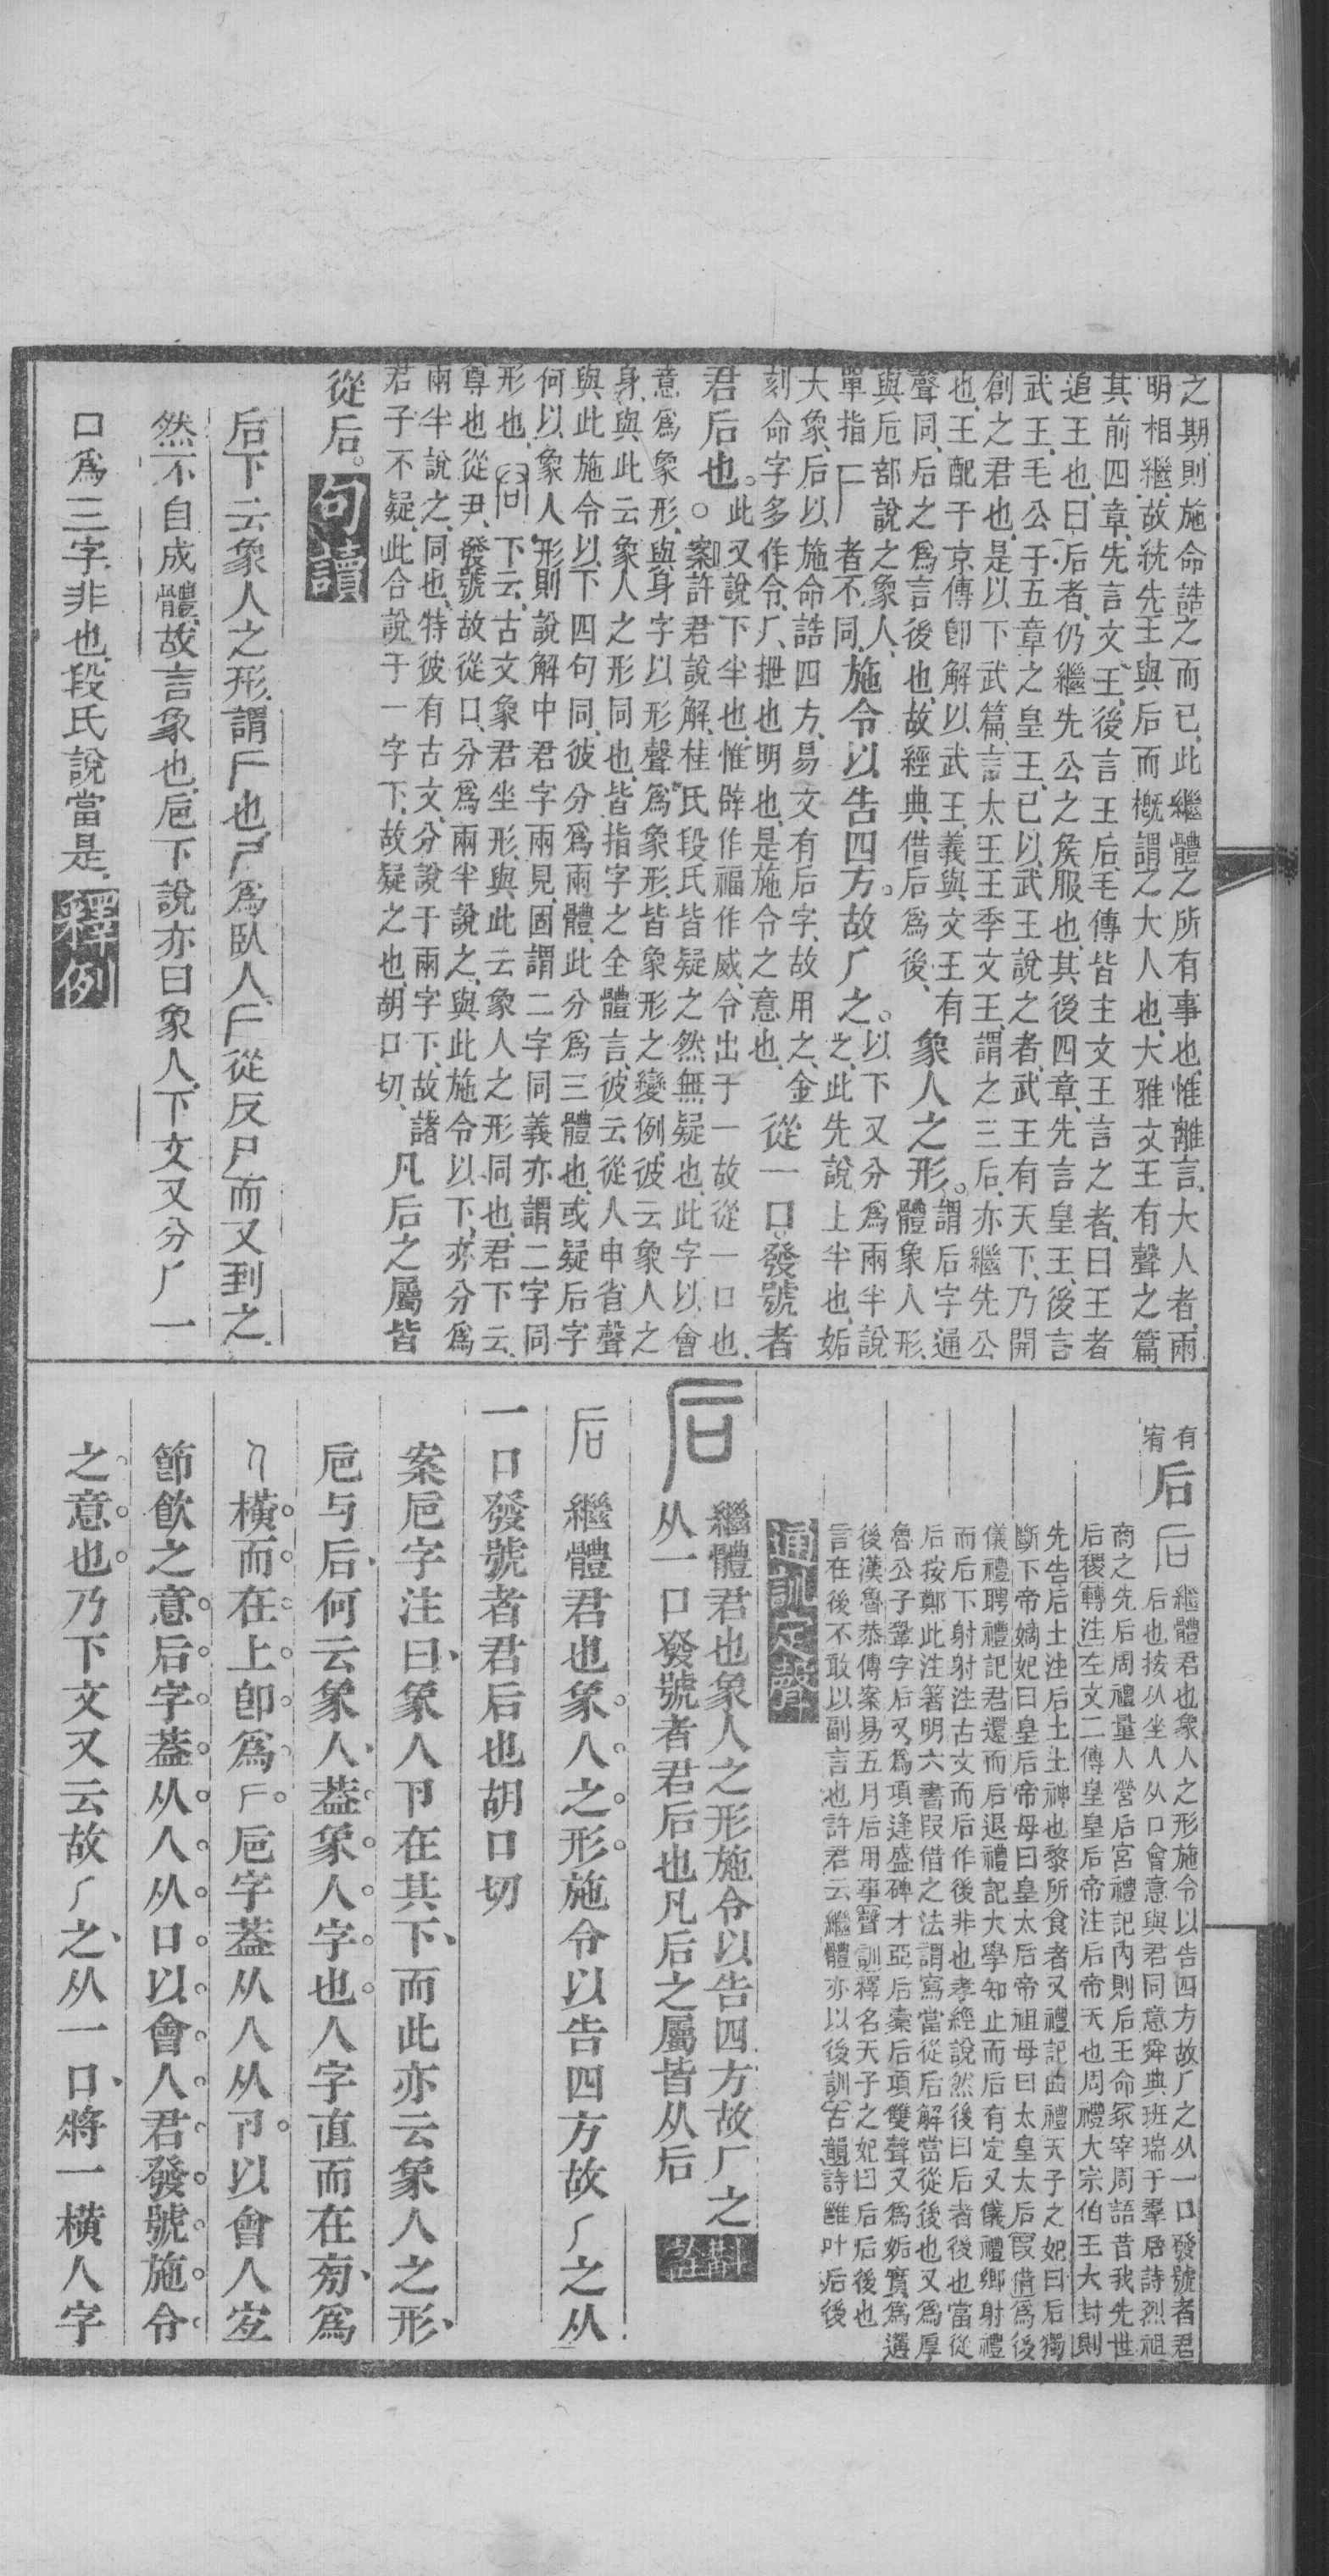 之期則施命誥之而已此繼體之所有事也惟離言大人者雨
明相繼故統先王與后而槪謂之大人也大雅文王有聲之篇
其前四章先言文王後言王后毛傳皆主文王言之者曰王者
追王也曰后者仍繼先公之矦服也其後四章先言皇王後言
武王毛公于五章之皇王已以武王說之者武王有天下乃開
創之君也是以下武篇言太王王季文王謂之三后亦繼先公
也王配于京傳卽解以武王義與文王有
聲同后之爲言後也故經典借后爲後
象人之形謂后字通體象人形
與卮部說之象人
單指𠂋者不同
施令以告四方故𠂆之以下又分爲兩半說之此先說上半也姤
大象后以施命誥四方易文有后字故用之金
刻命字多作令𠂆抴也明也是施令之意也
從一口發號者
君后也此又說下半也惟辟作福作威令出于一故從一口也
○案許君說解桂氏段氏皆疑之然無疑也此字以會
意爲象形與身字以形聲爲象形皆象形之變例彼云象人之
身與此云象人之形同也皆指字之全體言彼云從人申省聲
與此施令以下四句同彼分爲兩體此分爲三體也或疑后字
何以象人形則說解中君字兩見固謂二字同義亦謂二字同
形也㕯下云古文象君坐形與此云象人之形同也君下云
尊也從尹發號故從口分爲兩半說之與此施令以下亦分爲
兩半說之同也特彼有古文分說于兩字下故諸
君子不疑此合說于一字下故疑之也胡口切
凡后之屬皆
從后句讀
后下云象人之形謂𠂋也𠃜爲臥人𠂋從反尸而又到之
然不自成體故言象也卮下說亦曰象人下文又分𠂆一
口爲三字非也段氏說當是釋例
有宥后后繼體君也象人之形施令以告四方故𠂆之从一口發號者君
后也按从坐人从口會意與君同意舜典班瑞于羣后詩烈祖
商之先后周禮量人營后宮禮記內則后王命冢宰周語昔我先世
后稷轉注左文二傳皇皇后帝注后帝天也周禮大宗伯王大封則
先告后土注后土土神也黎所食者又禮記曲禮天子之妃曰后獨
斷下帝嫡妃曰皇后帝母曰皇太后帝祖母曰太皇太后叚借爲後
儀禮聘禮記君還而后退禮記大學知止而后有定又儀禮鄉射禮
而后下射射注古文而后作後非也孝經說然後曰后者後也當從
后按鄭此注著明六書叚借之法謂寫當從后解當從後也又爲厚
魯公子鞏字后又爲項逢盛碑才亞后橐后項雙聲又爲姤實爲遘
後漢魯恭傳案易五月后用事聲訓釋名天子之妃曰后后後也
言在後不敢以副言也許君云繼體亦以後訓古韻詩雝叶后後
通訓定聲
后繼體君也象人之形施令以告四方故厂之
从一口發號者君后也凡后之屬皆从后斠詮
后繼體君也象人之形施令以告四方故𠂆之从
一口發號者君后也胡口切
案卮字注曰象人卪在其下而此亦云象人之形
卮与后何云象人葢象人字也人字直而在㫄爲
𠆢橫而在上卽爲𠂋卮字葢从人从卪以會人宐
節飮之意后字葢从人从口以會人君發號施令
之意也乃下文又云故𠂆之从一口將一橫人字